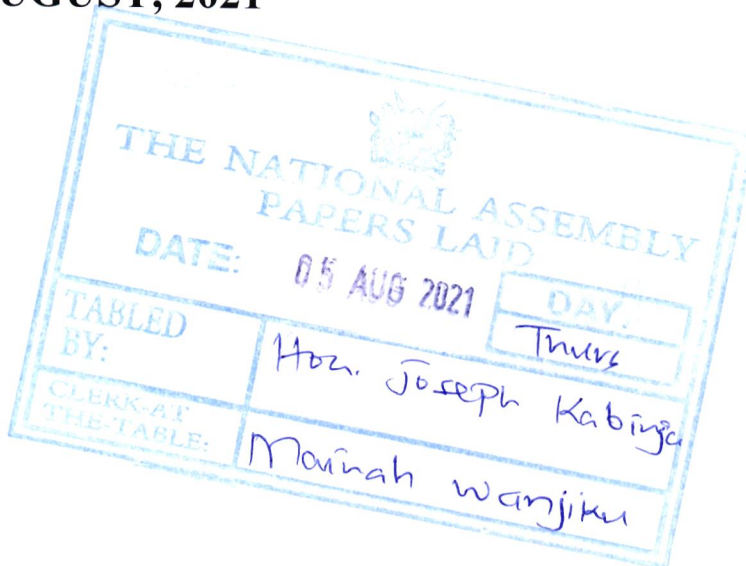 UGUST, 2021
THE NATIONAL ASSEMBLY
PAPERS LAID
DATE: 05 AUG 2021
DAY.
Thurs
TABLED
BY:
Hon. Joseph Kabinga
CLERK-AT
THE-TABLE:
Mainah Wanjiku